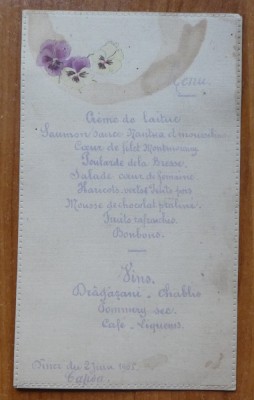 Menu
Crème de laitue
Saumon sauce Nantua et mousseline
Cœur de filet Montmorency
Poularde de la Bresse
Salade cœur de Romaine
Haricots verts et petits pois
Mousse de chocolat praliné
Fruits rafraichis
Bonbons
Vins
Drăgășani - Chablis
Pommery sec
Café - Liqueurs
Diner du 2 Juin
Capsa